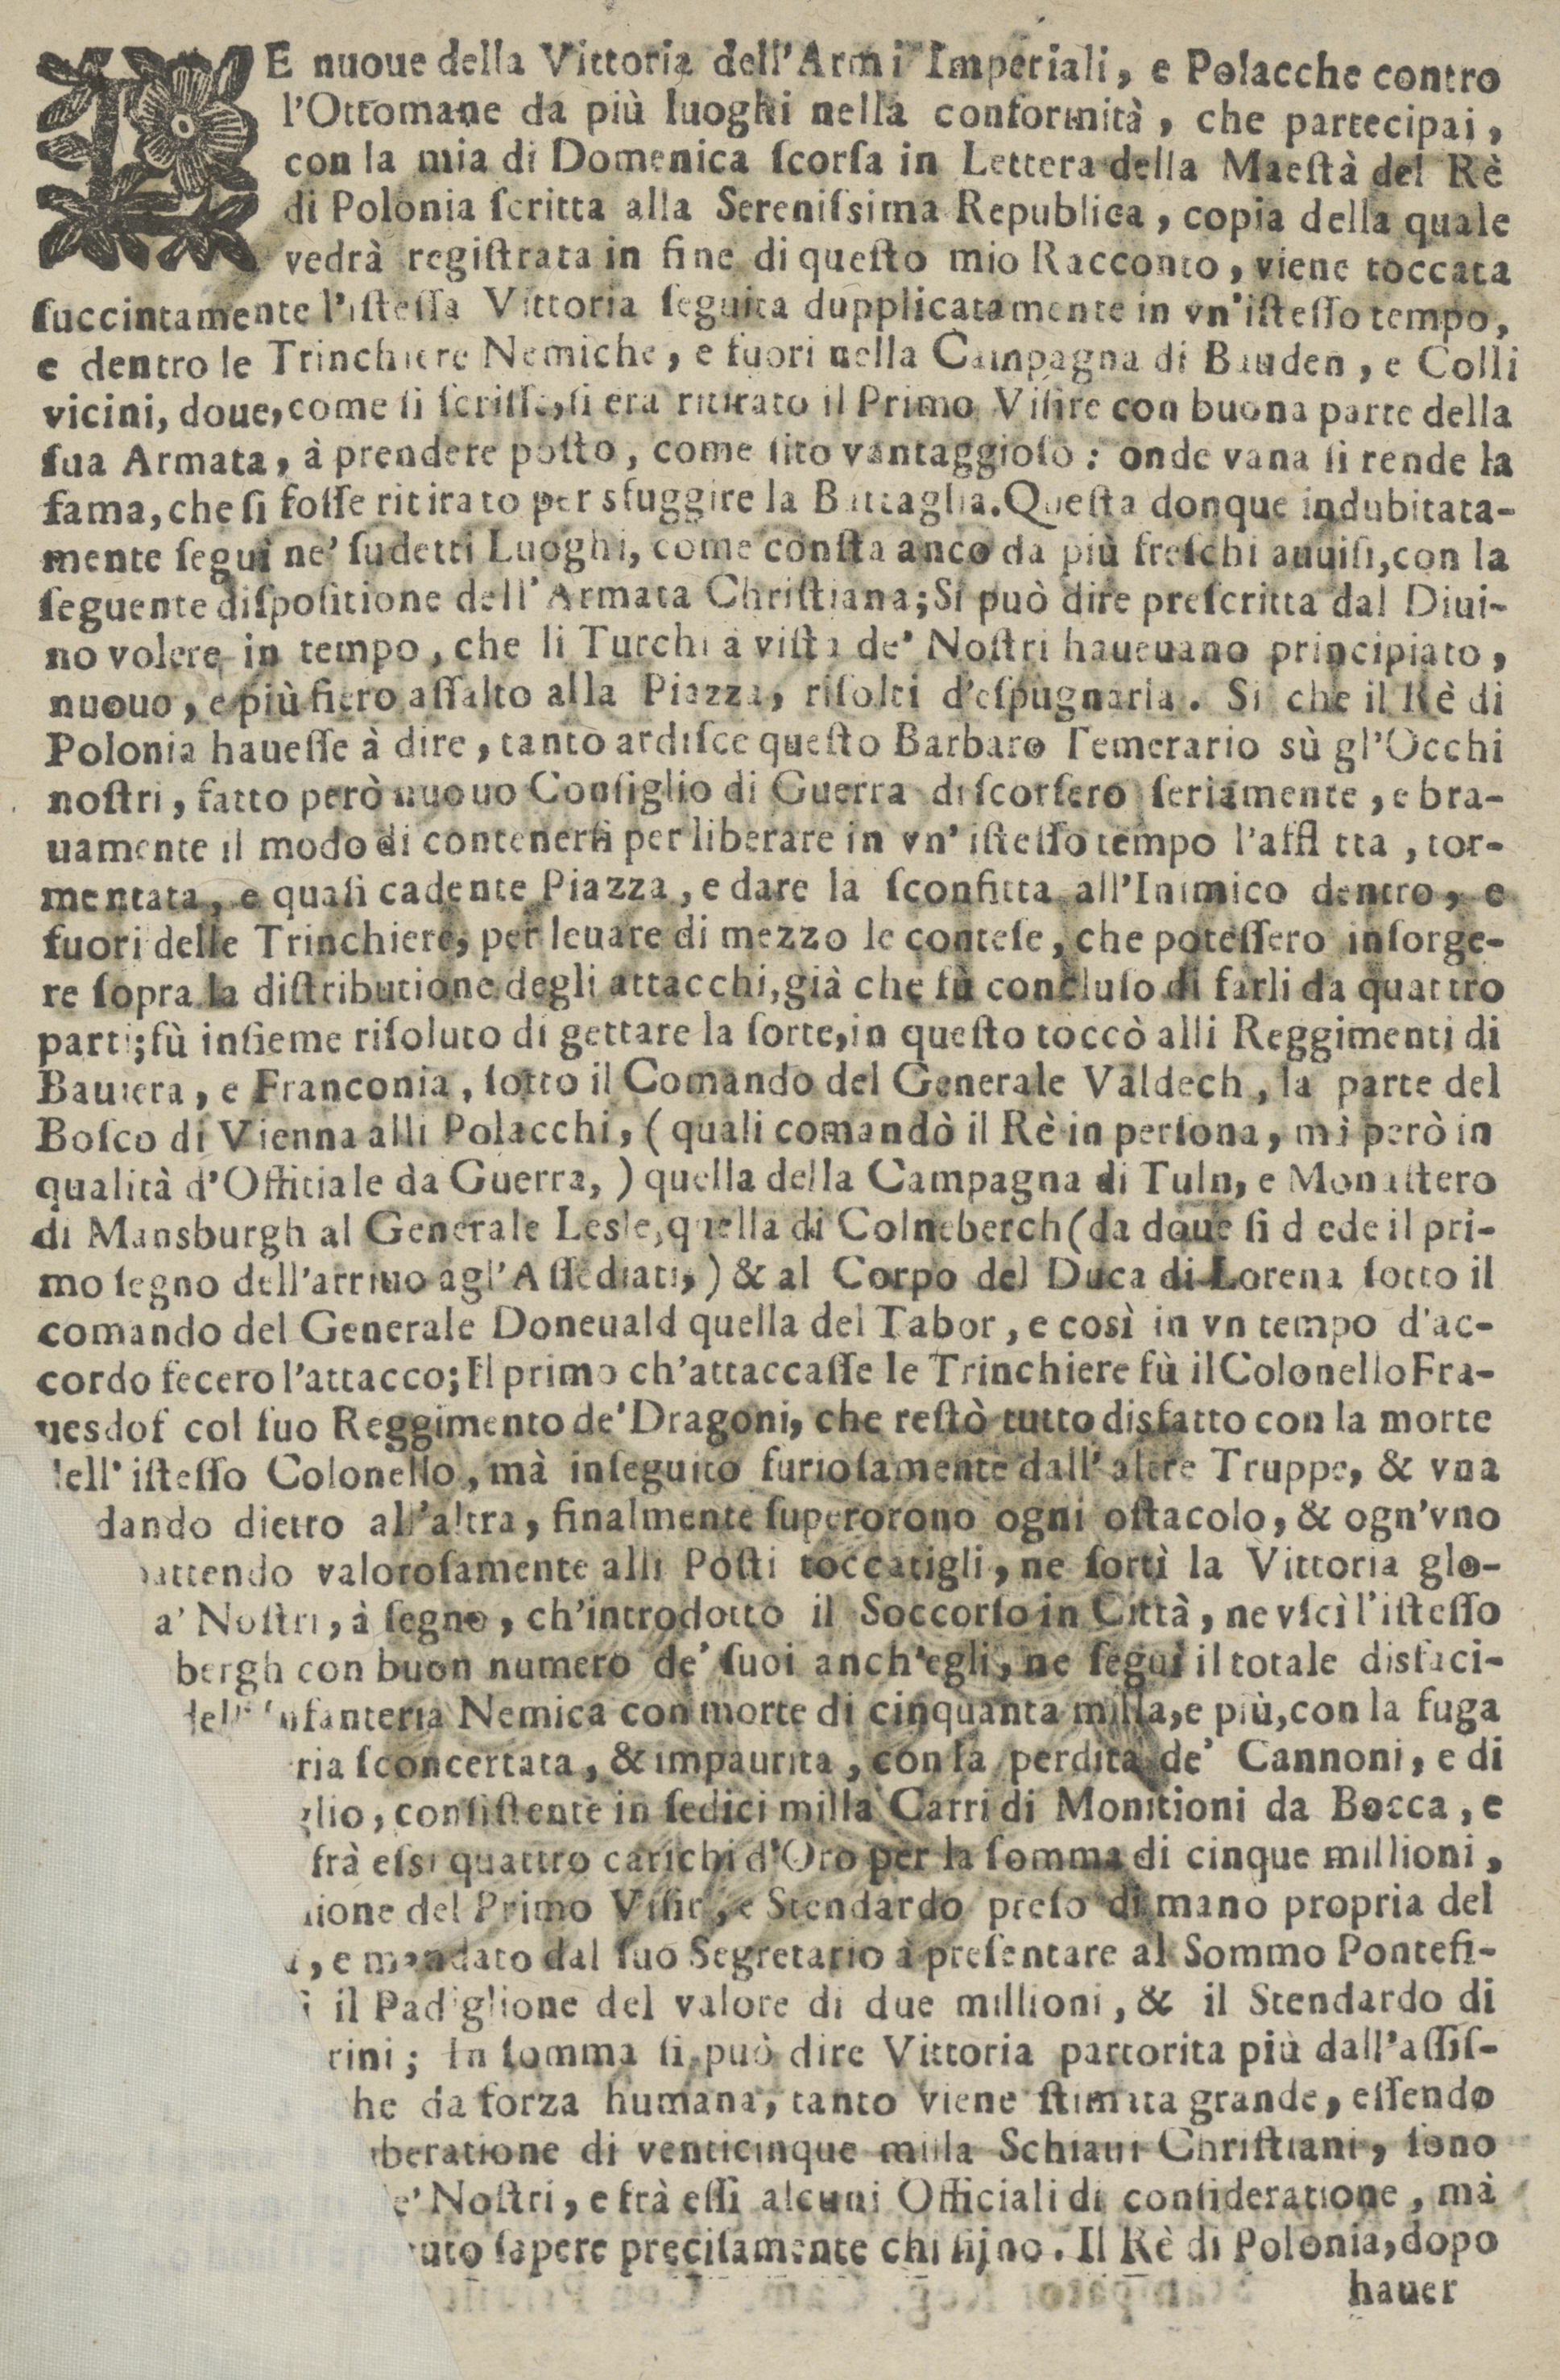 LE nuoue della Vittoria dell'Armi Imperiali, e Polacche contro
l'Ottomane da più luoghi nella conformità, che partecipai,
con la mia di Domenica ſcorſa in Lettera della Maeſtà del Rè
di Polonia ſcritta alla Sereniſsima Republica, copia della quale
vedrà regiſtrata in fine di queſto mio Racconto, viene toccata
ſuccintamente l'iſteſſa Vittoria ſeguita dupplicatamente in vn'iſteſſo tempo,
e dentro le Trinchiere Nemiche, e fuori nella Campagna di Bauden, e Colli
vicini, doue, come ſi ſcriſſe, ſi era ritirato il Primo Viſire con buona parte della
ſua Armata, à prendere poſto, come ſito vantaggioſo: onde vana ſi rende la
fama, che ſi foſſe ritirato per sfuggire la Battaglia. Queſta donque indubitata-
mente ſeguì ne' ſudetti Luoghi, come conſta anco da più freſchi auuiſi, con la
ſeguente diſpoſitione dell'Armata Chriſtiana; Si può dire preſcritta dal Diui-
no volere in tempo, che li Turchi à viſta de' Noſtri haueuano principiato,
nuouo, e più fiero aſſalto alla Piazza, riſolti d'eſpugnarla. Si che il Rè di
Polonia haueſſe à dire, tanto ardiſce queſto Barbaro Temerario sù gl'Occhi
noſtri, fatto però nuouo Conſiglio di Guerra diſcorſero ſeriamente, e bra-
uamente il modo di contenerſi per liberare in vn' iſteſſo tempo l'affl tta, tor-
mentata, e quaſi cadente Piazza, e dare la ſconfitta all'Inimico dentro, e
fuori delle Trinchiere, per leuare di mezzo le conteſe, che poteſſero inſorge-
re ſopra la diſtributione degli attacchi, già che fù concluſo di farli da quattro
parti; fù inſieme riſoluto di gettare la ſorte, in queſto toccò alli Reggimenti di
Bauiera, e Franconia, ſotto il Comando del Generale Valdech, la parte del
Boſco di Vienna alli Polacchi, (quali comandò il Rè in perſona, mì però in
qualità d'Offitiale da Guerra,) quella della Campagna di Tuln, e Monaſtero
di Mansburgh al Generale Lesle, quella di Colneberch (da doue ſi d ede il pri-
mo ſegno dell'arriuo agl'Aſſediati,) & al Corpo del Duca di Lorena ſotto il
comando del Generale Doneuald quella del Tabor, e così in vn tempo d'ac-
cordo fecero l'attacco; Il primo ch'attaccaſſe le Trinchiere fù il Colonello Fra-
uesdof col ſuo Reggimento de' Dragoni, che reſtò tutto disfatto con la morte
dell' iſteſſo Colonello, mà inſeguito furioſamente dall' altre Truppe, & vna
dando dietro all'altra, finalmente ſuperorono ogni oſtacolo, & ogn'vno
battendo valoroſamente alli Poſti toccatigli, ne ſortì la Vittoria glo-
a' Noſtri, à ſegno, ch'introdotto il Soccorſo in Città, ne vſcì l'iſteſſo
bergh con buon numero de' ſuoi anch'egli, ne ſeguì il totale disfaci-
dell' Infanteria Nemica con morte di cinquanta milla, e più, con la fuga
ria ſconcertata, & impaurita, con la perdita de' Cannoni, e di
glio, conſiſtente in ſedici milla Carri di Monitioni da Bocca, e
frà eſsi quattro carichi d'Oro per la ſomma di cinque millioni,
lione del Primo Viſir, e Stendardo preſo di mano propria del
, e mandato dal ſuo Segretario à preſentare al Sommo Pontefi-
il Padiglione del valore di due millioni, & il Stendardo di
rini; In ſomma ſi può dire Vittoria partorita più dall'aſſiſ-
he da forza humana, tanto viene ſtimata grande, eſſendo
beratione di venticinque milla Schiaui Chriſtiani, ſono
e' Noſtri, e frà eſſi alcuni Officiali di conſideratione, mà
uto ſapere preciſamente chi ſijno. Il Rè di Polonia, dopo
hauer